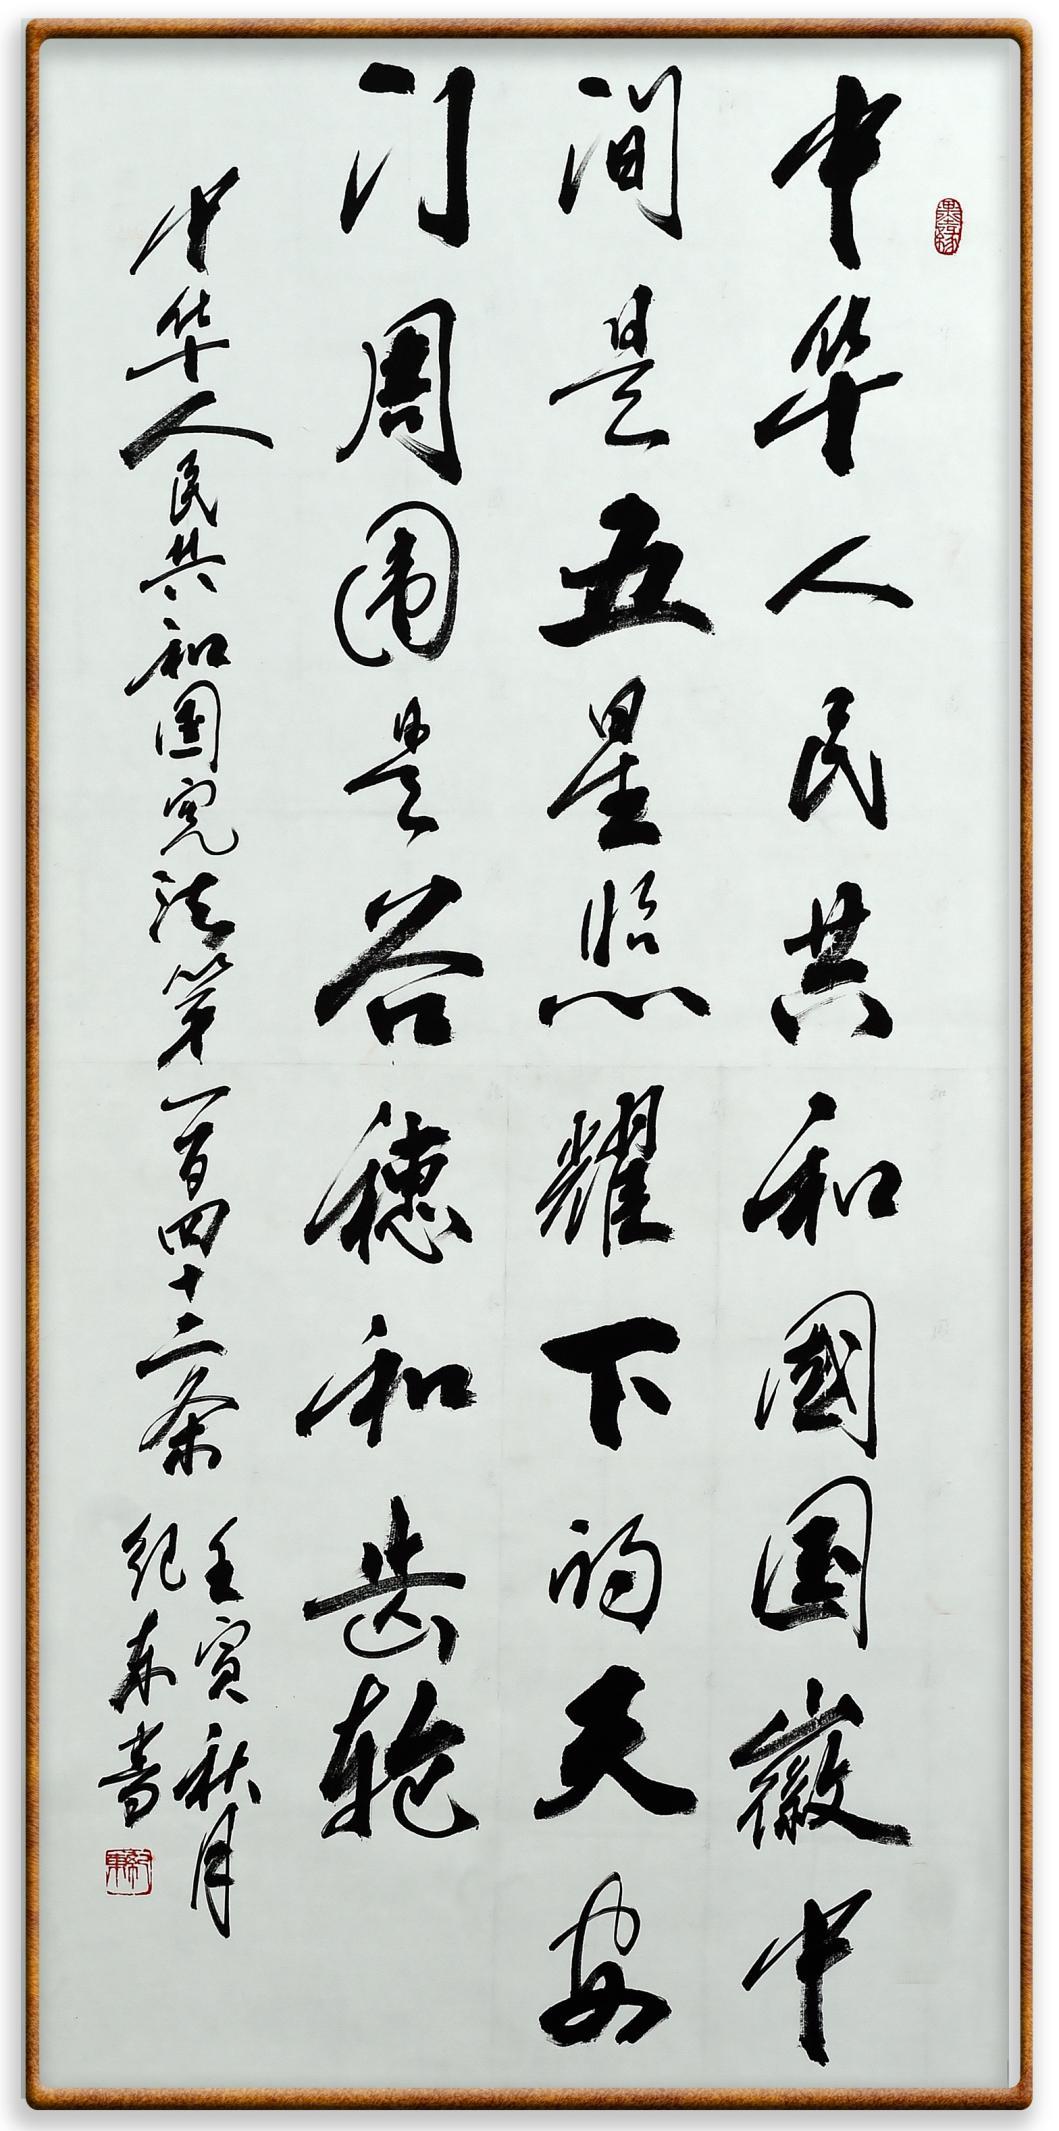 中华人民共和國国徽中
间是五星照耀下的天安
门周围是谷穗和齿轮
中华人民共和国宪法第一百四十二条
壬寅秋月
纪东书
墨缘
纪东